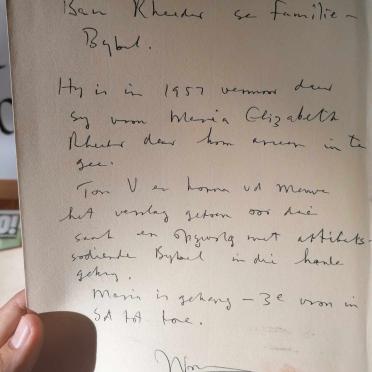 Ben Rheeder se familie-
Bybel.
Hy is in 1957 vermoor deur
sy vrou Maria Elizabeth
Rheeder deur hom arseen in te
gee.
Ton V en Hanna vd Merwe
het verslag gedoen oor die
saak en opgevolg met
Bybel in die hande
gekry.
Maria is gehang – 3e vrou in
SA tot toe.